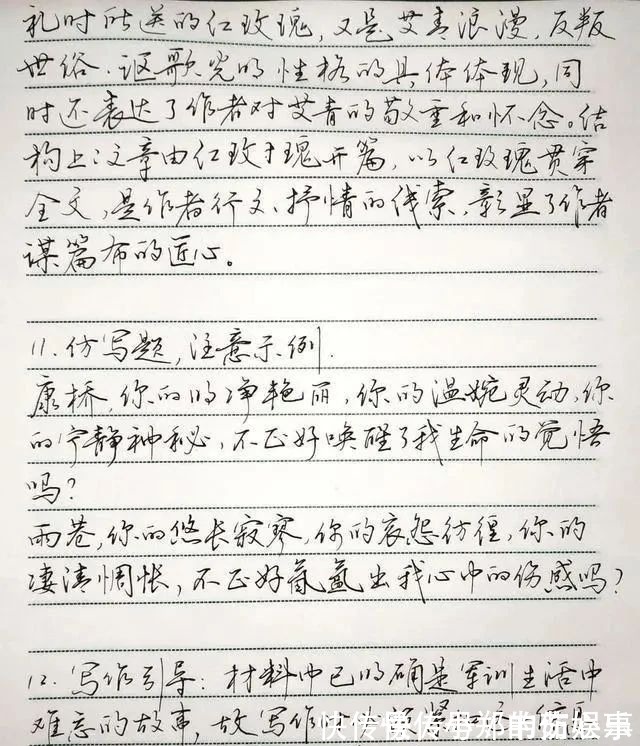 礼时所送的红玫瑰，又是艾青浪漫，反叛
世俗、讴歌光明性格的具体体现，同
时还表达了作者对艾青的敬重和怀念。结
构上文章由红玫瑰开篇，以红玫瑰贯穿
全文，是作者行文、抒情的线索，彰显了作者
谋篇布的匠心。
11.仿写题，注意示例.
康桥，你的明净艳丽，你的温婉灵动，你
的宁静神秘，不正好唤醒了我生命的觉悟
吗？
雨巷，你的悠长寂寥，你的哀怨彷徨，你的
凄清惆怅，不正好氤氲出我心中的伤感吗？
12.写作引导：材料中已明确是军训生活中
难忘的故事，故写作
快传号